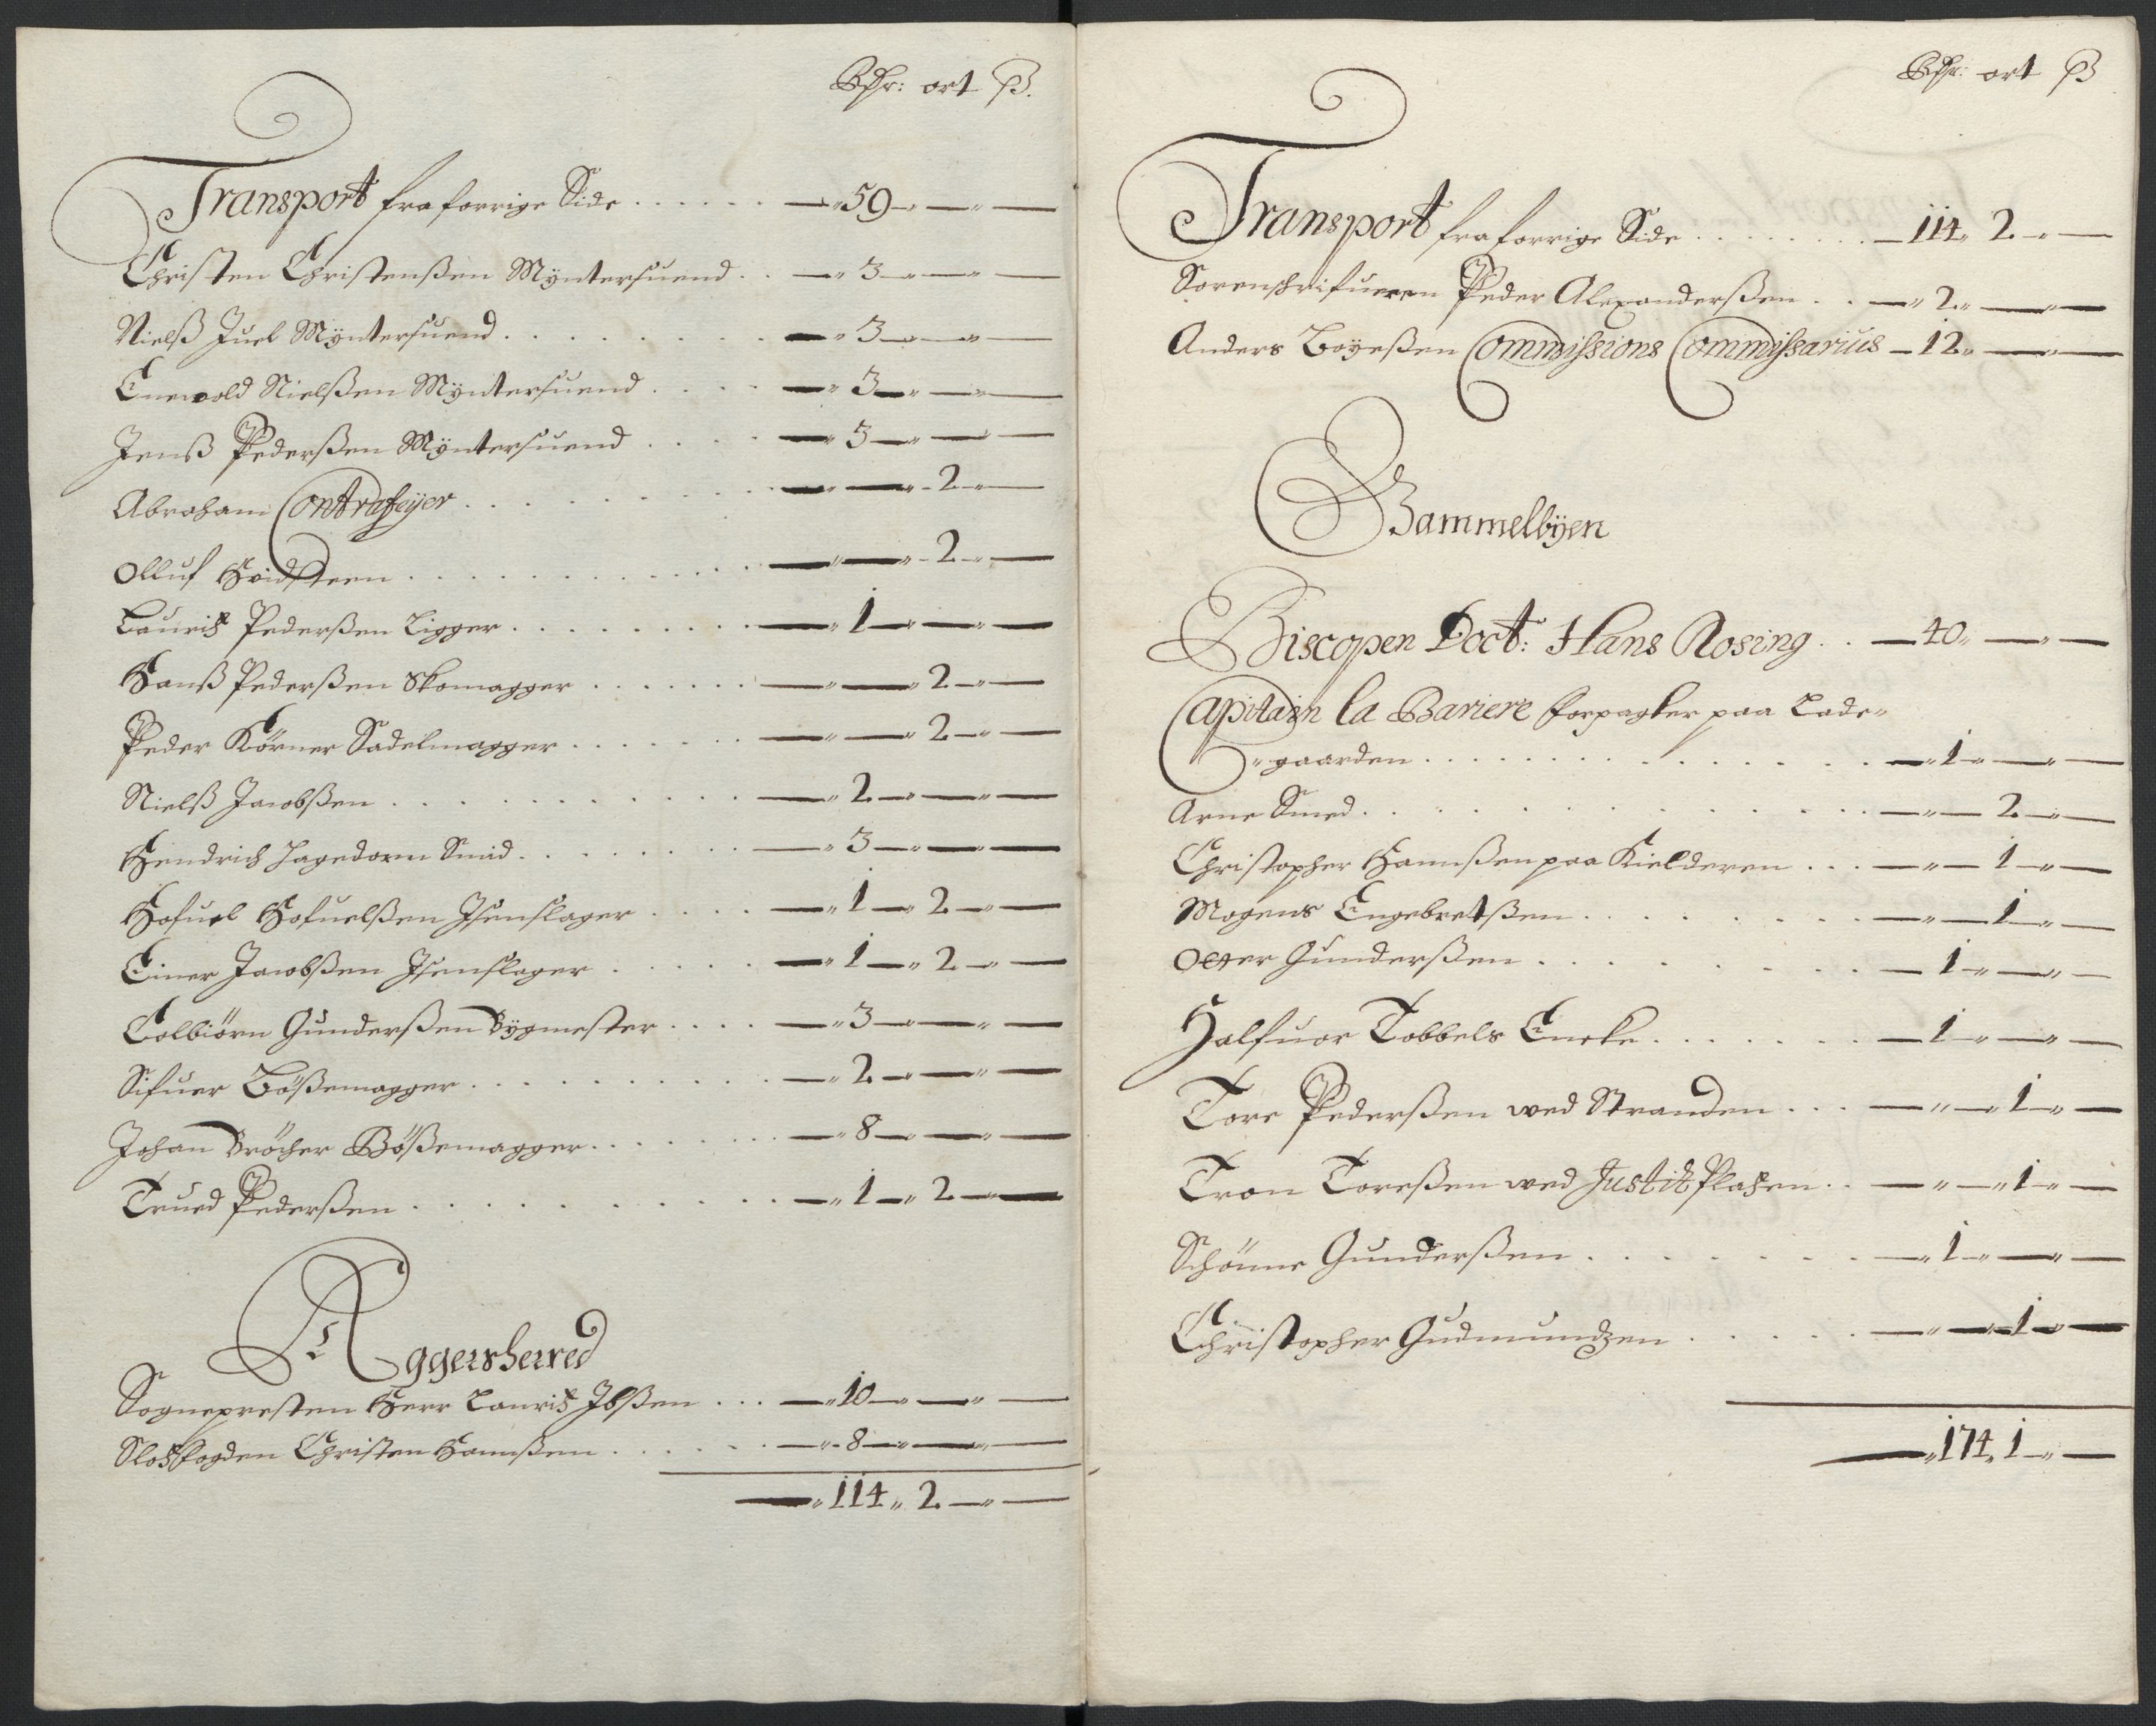 Rdr: ort ß.
Transport fra forrige Side . . . . . . — 59 — —
Christen Christenßen Myntersuend . . — 3 — —
Nielß Juel Myntersuend . . . . . . — 3 — —
Enevold Nielßen Myntersuend . . . . — 3 — —
Jenß Pederßen Myntersuend . . . . — 3 — —
Abraham Contrafeyer . . . . . . — — 2 —
Olluf Hvidsteen . . . . . . . . — — 2 —
Lauritz Pederßen Ligger . . . . . . — 1 — —
Hanß Pederßen Skomagger . . . . . . — — 2 —
Peder Körner Sadelmagger . . . . . . — — 2 —
Nielß Jacobßen . . . . . . . . — 2 — —
Hendrich Hagedorn Smid . . . . . . — 3 — —
Hofuel Hofuelßen Isenslager . . . . — 1 — 2 —
Einer Jacobßen Isenslager . . . . — 1 — 2 —
Colbiörn Gunderßen Bygmester . . . . — 3 — —
Sifuer Bößemagger . . . . . . . . — 2 — —
Johan Bröcher Bößemagger . . . . . . — 8 — —
Trued Pederßen . . . . . . . . — 1 — 2 —
Aggersherred
Sognepresten Herr Lauritz Ibßen . . . — 10 — —
Slotzfogden Christen Hannßen . . . . . — 8 — —
— 114 „ 2 — —
Rdr: ort ß
Transport fra forrige Side . . . . . . — 114 „ 2 — —
Sorenskrifueren Peder Alexanderßen . . — 2 — —
Anders Boyeßen Commissions Commissarius — 12 — —
Gammelbyen
Biscopen Doct: Hans Rosing . . — 40 — —
Capitain la Bariere forpagter paa Lade-
-gaarden . . . . . . . . . . — 1 — —
Arne Smed . . . . . . . . . . — — 2 —
Christopher Hannßen paa Kielderen . . . — — 1 —
Mogens Engebretßen . . . . . . . . — — 1 —
Otter Gunderßen . . . . . . . . — 1 — —
Halfuor Tobbels Encke . . . . . . . — 1 — —
Tore Pederßen wed Stranden . . . — — 1 —
Tron Toreßen wed Justitz Platzen . . — — 1 —
Schönne Gunderßen . . . . . . . — 1 — —
Christopher Gudmundzen . . . . . . — — 1 —
— 174 „ 1 — —